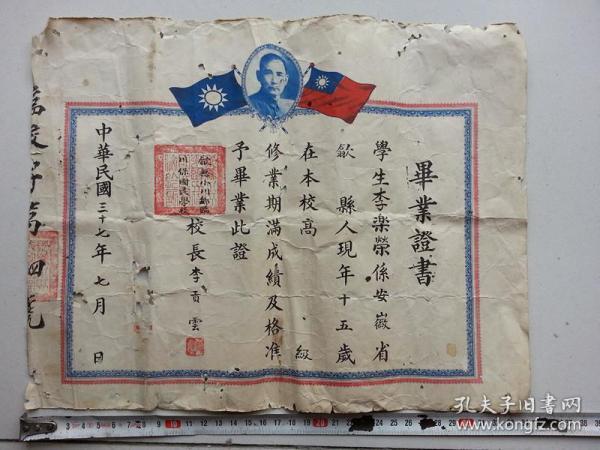 畢業證書
學生李樂榮係安徽省
歙縣人現年十五歲
在本校高級
修業期滿成績及格准
予畢業此證
校長李貢雲
中華民國三十七年七月 日
孔夫子旧书网
www.kongfz.com